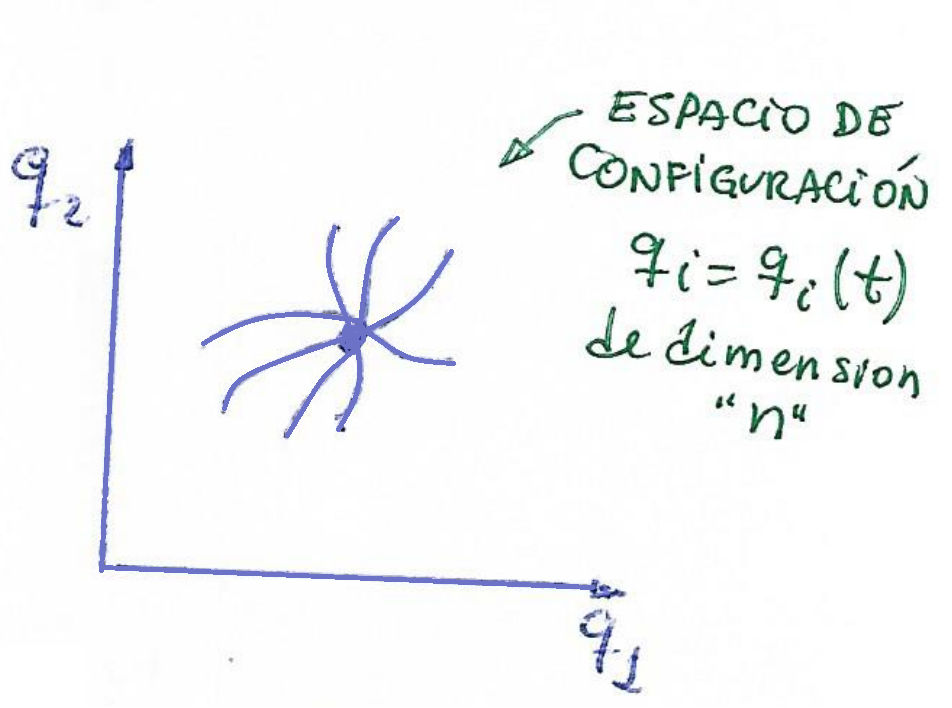 q₂
ESPACIO DE
CONFIGURACIÓN
qᵢ = qᵢ(t)
de dimension
"n"
q₁